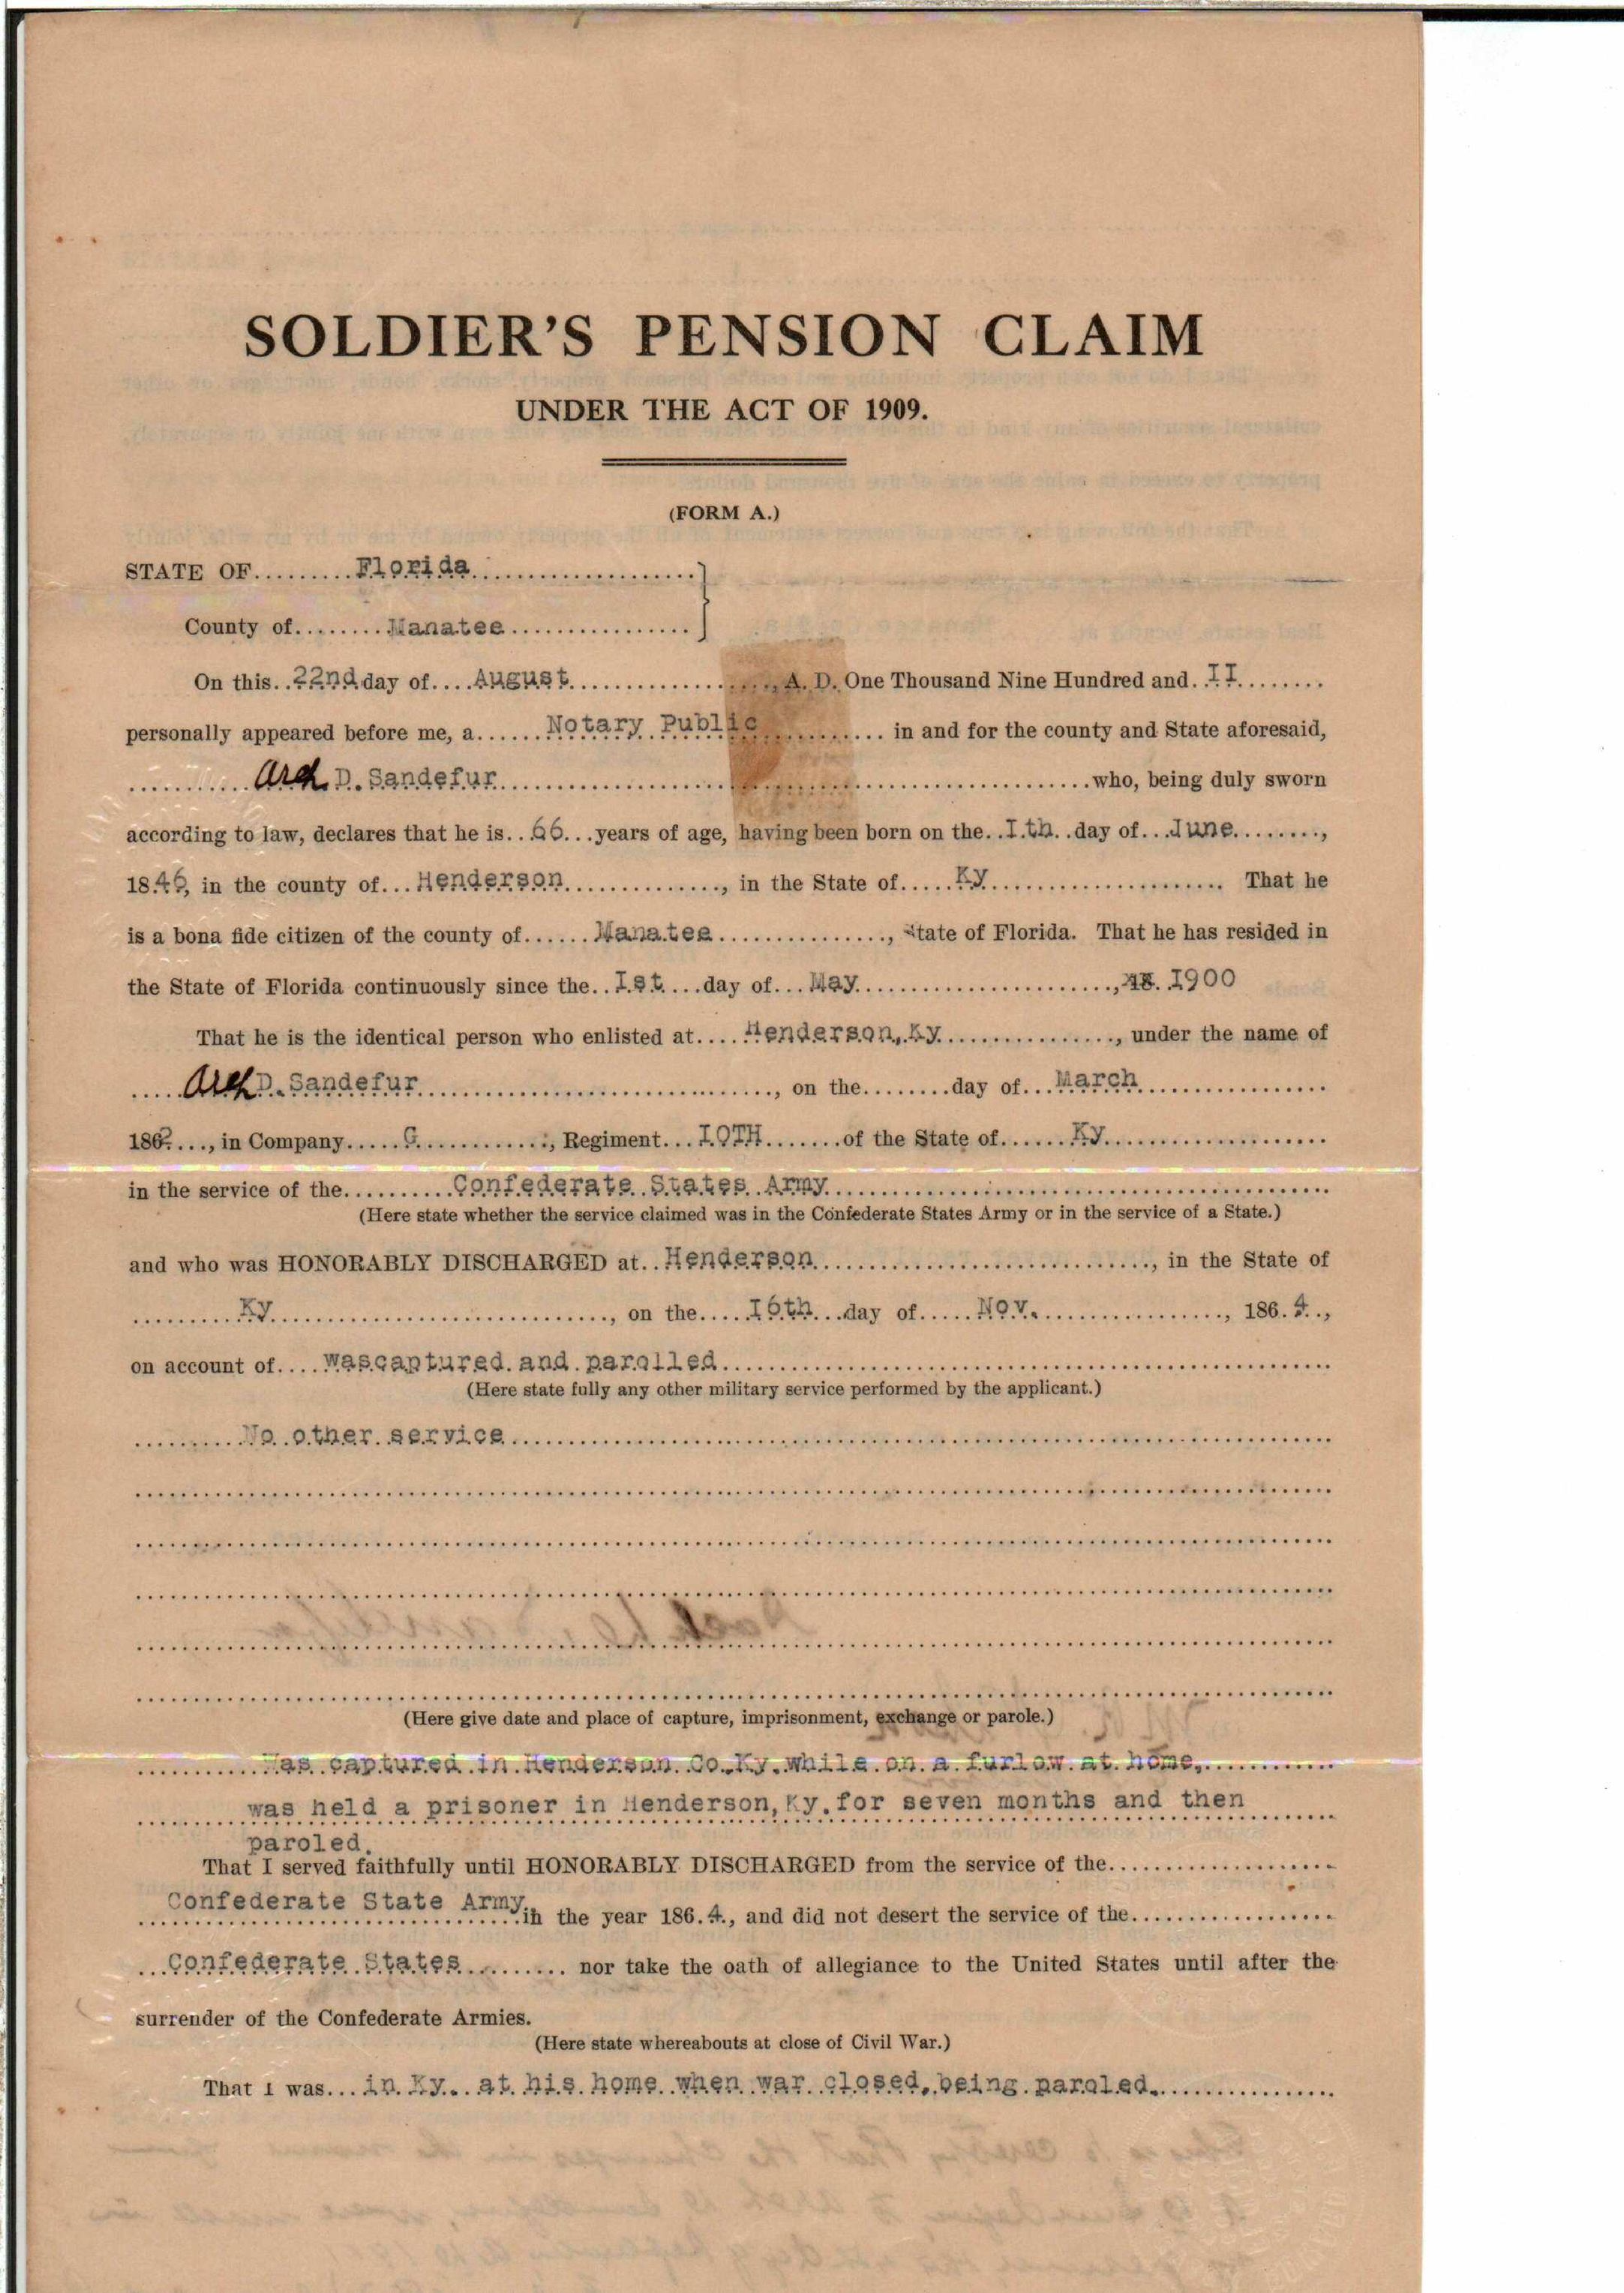 SOLDIER'S PENSION CLAIM
UNDER THE ACT OF 1909.
(FORM A.)
STATE OF..........Florida......................
County of.........Manatee.................
On this..22nd day of....August...................., A. D. One Thousand Nine Hundred and..II........
personally appeared before me, a......Notary Public............ in and for the county and State aforesaid,
............Arch D. Sandefur............................................................who, being duly sworn
according to law, declares that he is..66...years of age, having been born on the..I.th..day of...June........,
18 in the county of...Henderson..............., in the State of.....Ky...................... That he
is a bona fide citizen of the county of......Manatee................, State of Florida. That he has resided in
the State of Florida continuously since the..Ist....day of...May........................, 18. 1900
That he is the identical person who enlisted at....Henderson, Ky................., under the name of
.....Arch D. Sandefur....................................., on the........day of...March..................
186 ..., in Company.....G............, Regiment...IOTH.......of the State of......Ky.....................
in the service of the..........Confederate States Army..................................................
(Here state whether the service claimed was in the Confederate States Army or in the service of a State.)
and who was HONORABLY DISCHARGED at..Henderson.................................., in the State of
.........Ky................................., on the.....I6th...day of.....Nov.................., 186.4..,
on account of....wascaptured and parolled............................................................
(Here state fully any other military service performed by the applicant.)
.........No other service................................................................................
(Here give date and place of capture, imprisonment, exchange or parole.)
..........Was captured in Henderson Co.Ky.while on a furlow at home,............
was held a prisoner in Henderson,Ky.for seven months and then
paroled.
That I served faithfully until HONORABLY DISCHARGED from the service of the....................
Confederate State Army in the year 186.4., and did not desert the service of the..................
...Confederate States.......... nor take the oath of allegiance to the United States until after the
surrender of the Confederate Armies.
(Here state whereabouts at close of Civil War.)
That I was...in Ky.. at his home when war closed,being paroled.................